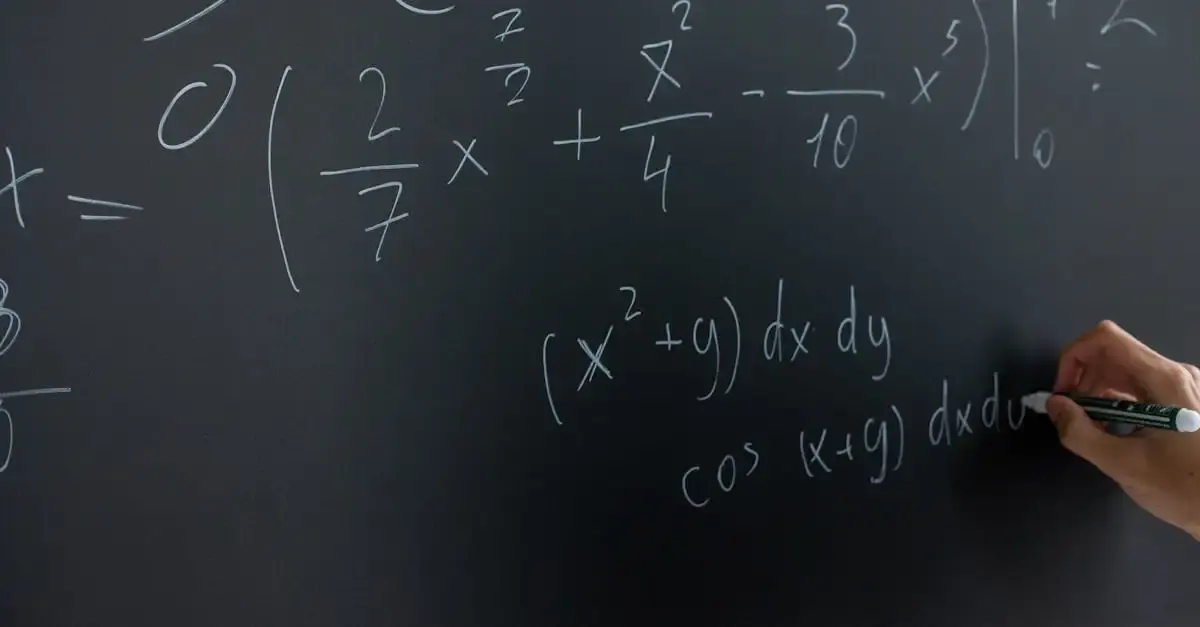 0 ( 2/7 x^7/2 + x^2/4 - 3/10 x^5 ) | 0
=
(x^2 + y) dx dy
cos (x+y) dx d